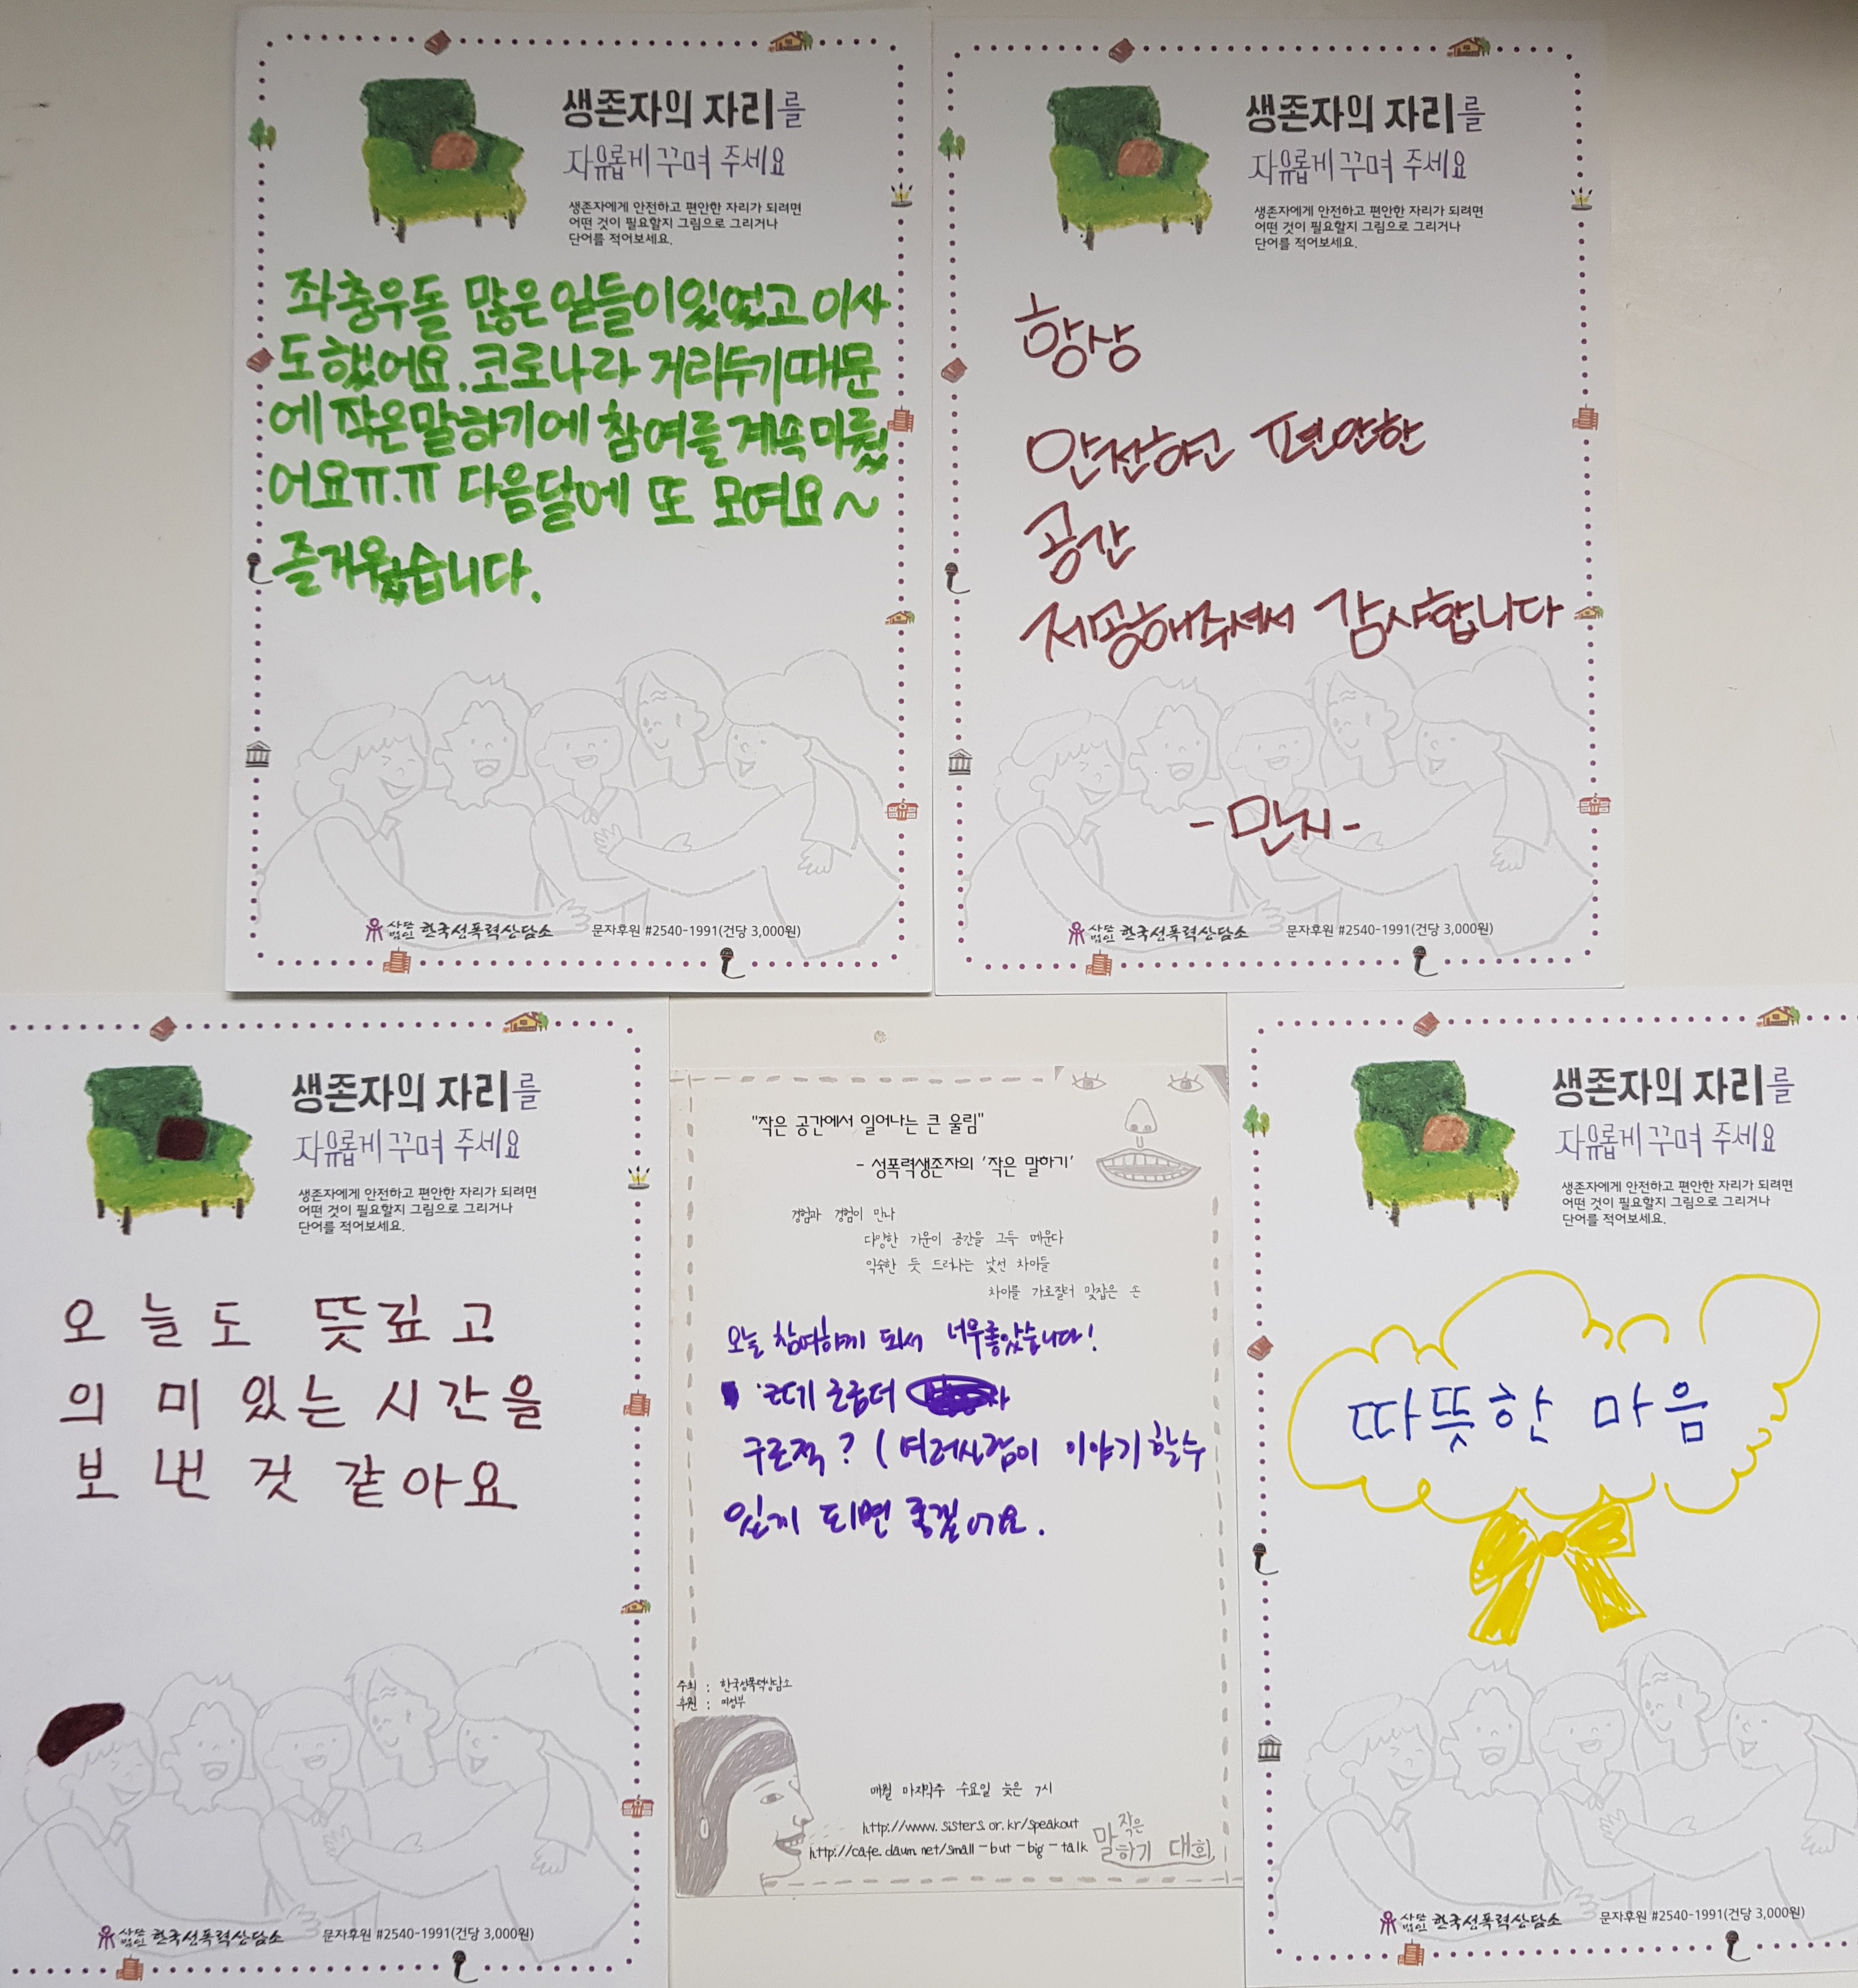 생존자의 자리를
자유롭게 꾸며 주세요
생존자에게 안전하고 편안한 자리가 되려면
어떤 것이 필요할지 그림으로 그리거나
단어를 적어보세요.
좌충우돌 많은 일들이있었고 이사
도했어요.코로나라 거리두기때문
에 작은말하기에 참여를 계속미뤘
어요ㅠ.ㅠ 다음달에 또 모여요~
즐거웠습니다.
사단법인 한국성폭력상담소 문자후원 #2540-1991(건당 3,000원)
생존자의 자리를
자유롭게 꾸며 주세요
생존자에게 안전하고 편안한 자리가 되려면
어떤 것이 필요할지 그림으로 그리거나
단어를 적어보세요.
항상
안전하고 편안한
공간
제공해주셔서 감사합니다
-민지-
사단법인 한국성폭력상담소 문자후원 #2540-1991(건당 3,000원)
생존자의 자리를
자유롭게 꾸며 주세요
생존자에게 안전하고 편안한 자리가 되려면
어떤 것이 필요할지 그림으로 그리거나
단어를 적어보세요.
오늘도 뜻깊고
의미있는 시간을
보낸 것 같아요
사단법인 한국성폭력상담소 문자후원 #2540-1991(건당 3,000원)
"작은 공간에서 일어나는 큰 울림"
- 성폭력생존자의 '작은 말하기'
경험과 경험이 만나
다양한 기운이 공간을 그득 메운다
익숙한 듯 드러나는 낯선 차이들
차이를 가로질러 맞잡은 손
오늘 참여하게 되서 너무좋았습니다!
구조적? (여러사람이 이야기 할수
있게 되면 좋겠어요.
주최 : 한국성폭력상담소
후원 : 여성부
매월 마지막주 수요일 늦은 7시
http://www.sisters.or.kr/speakout
http://cafe.daum.net/small-but-big-talk
작은
말하기 대회
생존자의 자리를
자유롭게 꾸며 주세요
생존자에게 안전하고 편안한 자리가 되려면
어떤 것이 필요할지 그림으로 그리거나
단어를 적어보세요.
따뜻한 마음
사단법인 한국성폭력상담소 문자후원 #2540-1991(건당 3,000원)